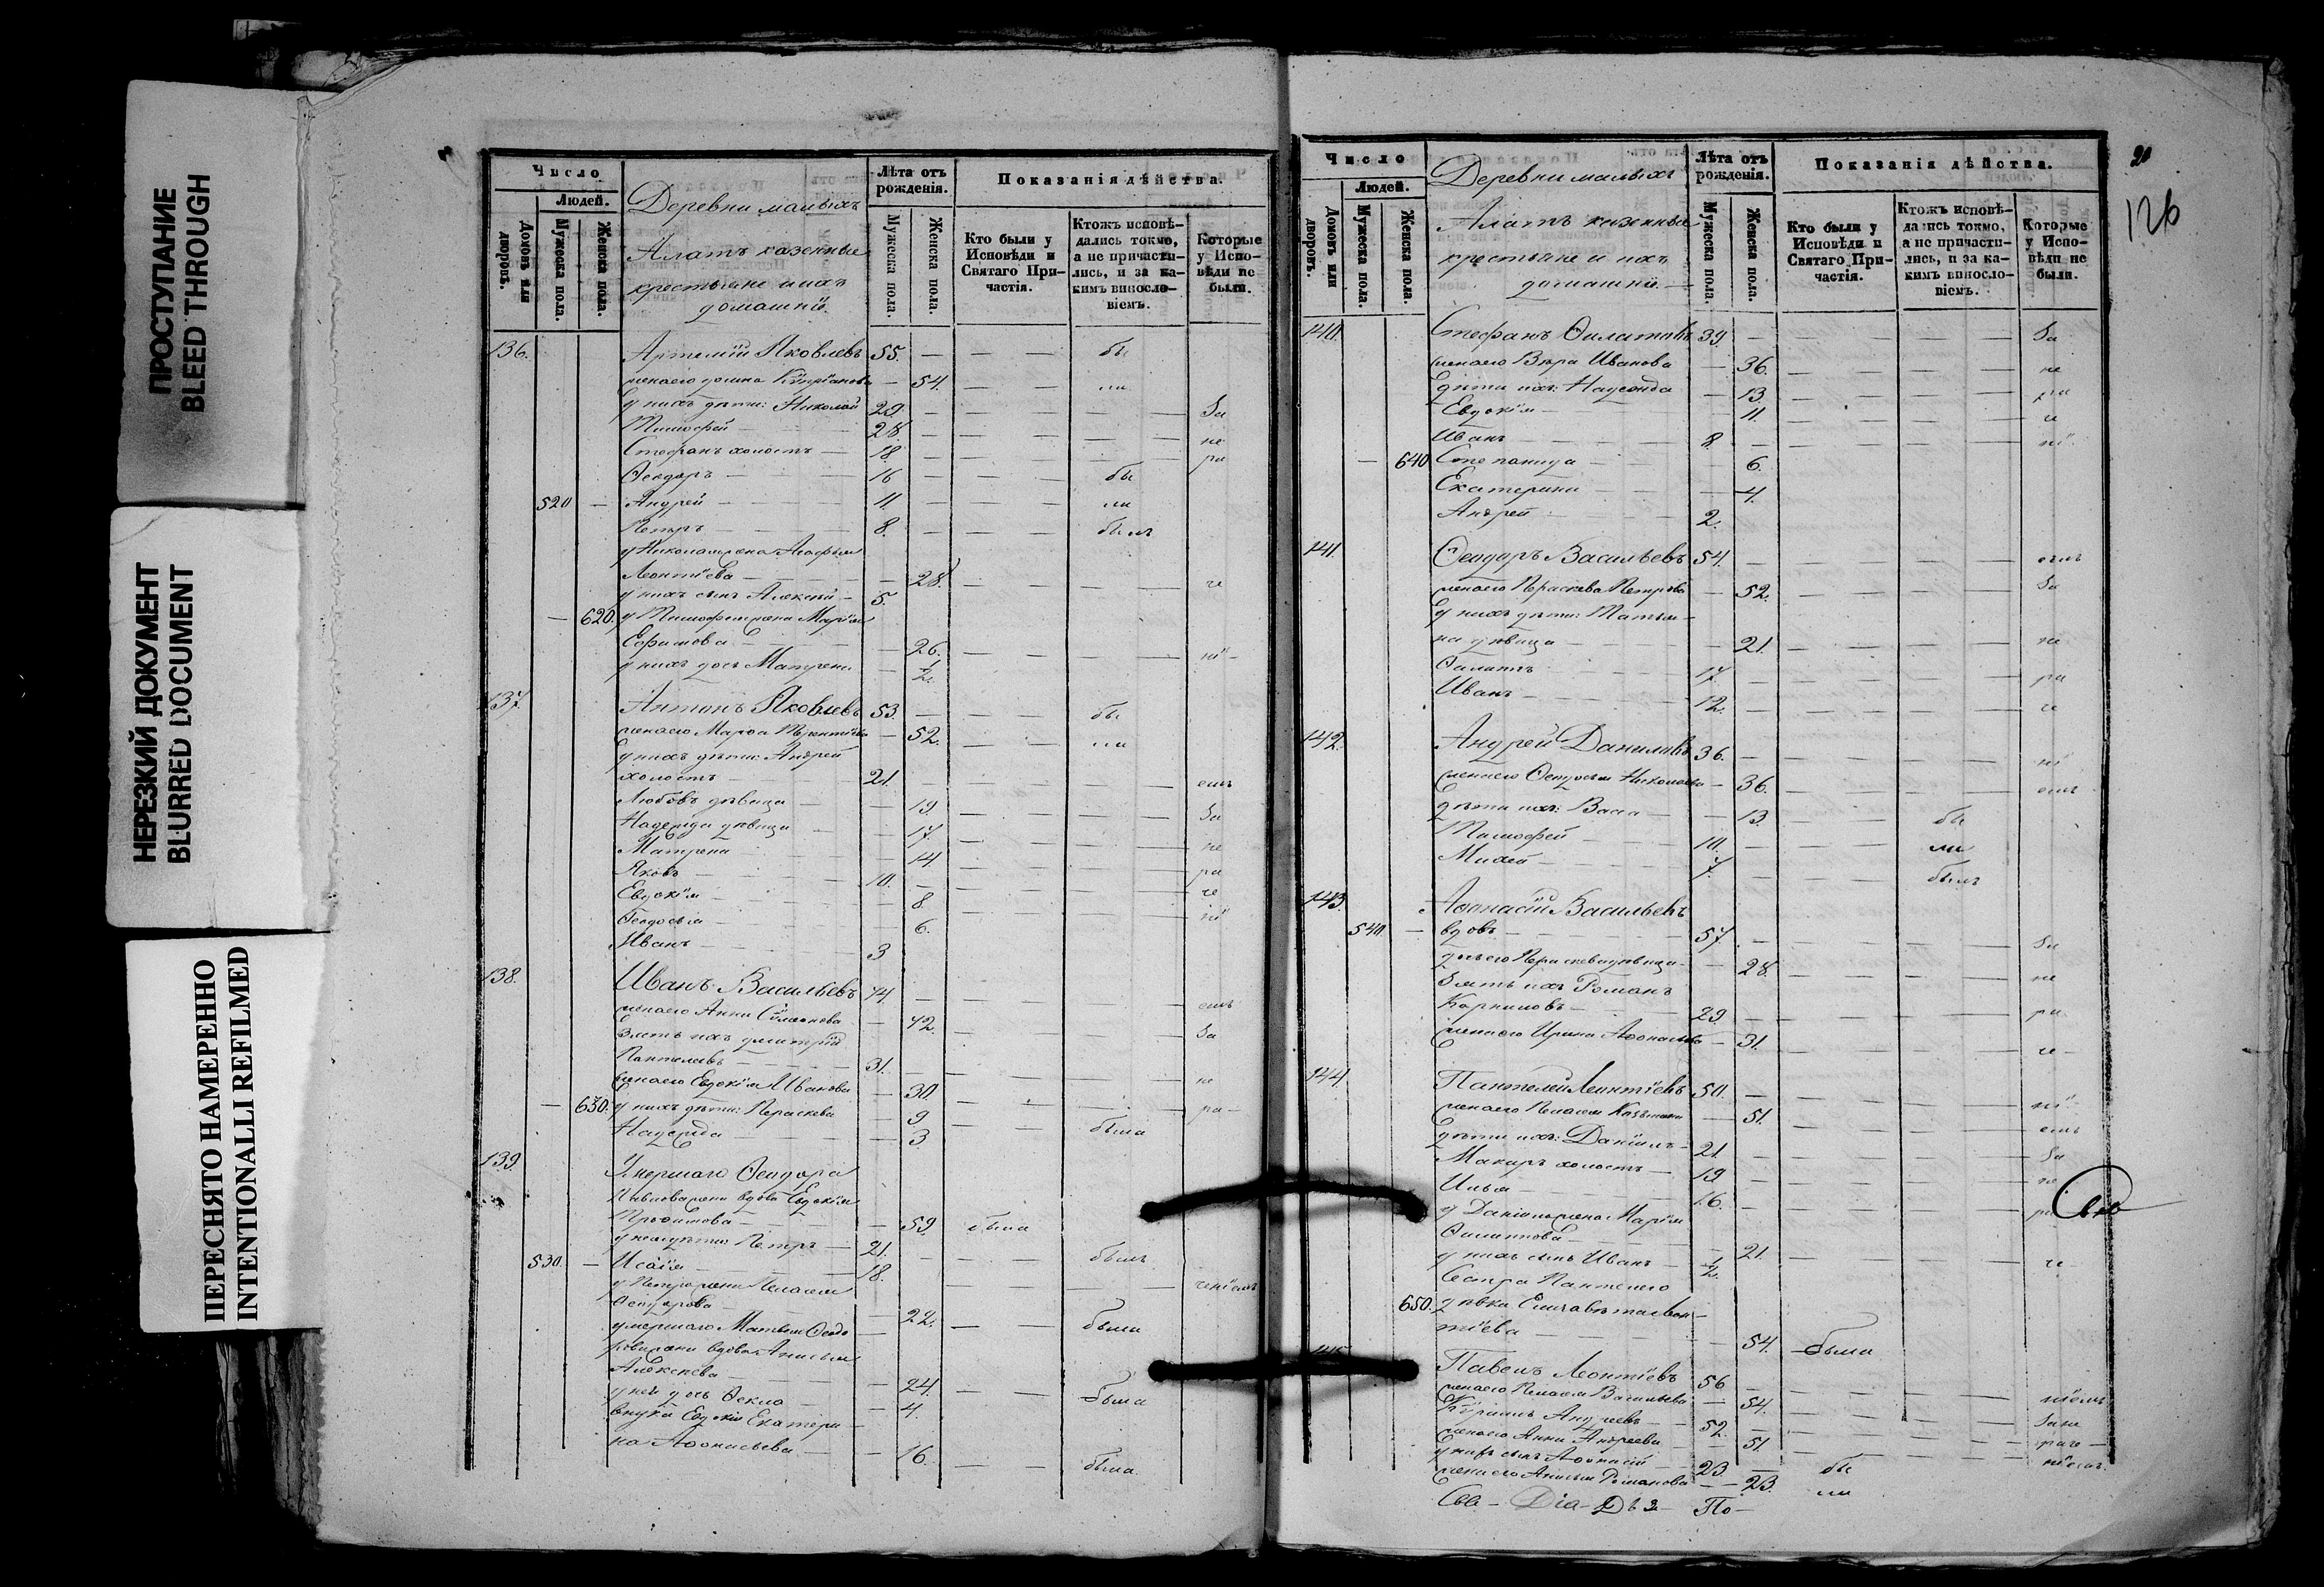 ПРОСТУПАНИЕ
BLEED THROUGH
НЕРЕЗКИЙ ДОКУМЕНТ
BLURRED DOCUMENT
ПЕРЕСНЯТО НАМЕРЕННО
INTENTIONALLI REFILMED
Число
Людей.
Домовъ или дворовъ.
Мужеска пола.
Женска пола.
Деревни малыхъ
Алатъ казенные
крестьяне и ихъ
домашніе.
Лѣта отъ рожденія.
Мужеска пола.
Женска пола.
Показанія дѣйства.
Кто были у Исповѣди и Святаго При-частія.
Ктожъ исповѣ-дались токмо, а не причасти-лись, и за ка-кимъ винослο-віемъ.
Которые у Испо-вѣди не были.
136. Артемій Яковлевъ 55. бы
54. ли
у нихъ дѣти: Николай 29. За
Тимофей 28. не
Стефанъ холостъ 18. ра
Ѳеодоръ 16 бы
520 Андрей 11. ли
Петръ 8. былъ
у Николая жена
Леонтіева 28. че
у нихъ сынъ Алексѣй 5.
620. у Тимофея жена Марія
Ефимова 26. ні
у нихъ дочь Матрена 1/2.
137. Антонъ Яковлевъ 53. бы
жена его Марѳа 52. ли
у нихъ дѣти: Андрей
холостъ 21. емъ
Любовь дѣвица 19. За
Надежда дѣвица 17. не
Матрена 14 ра
Яковъ 10. че
Евдокія 8 ні
Ѳеодосья 6.
Иванъ 3
138. Иванъ Васильевъ 44. емъ
жена его Анна 42. За
Зять ихъ Димитрій
31. не
жена его Евдокія Иванова 30
630. у нихъ дѣти: Параскева 9 ра
Надежда 3 была
139. Умершаго Ѳеодора
жена вдова Евдокія
59. была
у нея дѣти: Петръ 21. былъ
530. Исаія 18.
у Петра жена Пелагея ченіемъ
Ѳеодорова 22. была
умершаго Матвея Ѳеодо
рова жена вдова Анисья
Алексеева 24. была
у ней дочь Ѳекла 4.
внука Евдокіи Екатери
на Аѳонасьева 16. была.
Число
Людей.
Домовъ или дворовъ.
Мужеска пола.
Женска пола.
Деревни малыхъ
Алатъ казенные
крестьяне и ихъ
домашніе.
Лѣта отъ рожденія.
Мужеска пола.
Женска пола.
Показанія дѣйства.
Кто были у Исповѣди и Святаго При-частія.
Ктожъ исповѣ-дались токмо, а не причасти-лись, и за ка-кимъ винослο-віемъ.
Которые у Испо-вѣди не были.
126
140. Стефанъ Филатовъ 39. За
жена его Вѣра Иванова 36. не
дѣти ихъ: Надежда 13. ра
Евдокія 11. че
Иванъ 8. ні
640 Степанида 6.
Екатерина 4.
Андрей 2.
141. Ѳеодоръ Васильевъ 54. емъ
жена его Параскева Петрова 52. За
у нихъ дѣти: Татья-
на дѣвица 21. не
Филатъ 17. ра
Иванъ 12. че
142. Андрей Даниловъ 36. ні
жена его Ѳеодосья Николаева 36. емъ
дѣти ихъ: Васса 13. бы
Тимофей 10. ли
Михей 7. былъ
143. Аѳонасій Васильевъ
540. вдовъ 57. За
дочь его Параскева дѣвица 28. не
Зять ихъ Романъ
Корниловъ 29. ра
жена его Ирина Аѳонасьева 31. че
144. Пантелей Леонтіевъ 50. ні
жена его Пелагея 51. емъ
дѣти ихъ: Даніилъ 21. За
Макаръ холостъ 19 не
Илья 16. ра
у Даніила жена Марія
Филиппова 21. че
у нихъ сынъ Иванъ 1/2.
Сестра Пантелея
650. дѣвка Елизавета Леон-
тіева 54. была
145. Павелъ Леонтіевъ 56 ніемъ
жена его Пелагея Васильева 54. Зане
Кириллъ Андреевъ 52. раче
жена его Анна Андреева 51. ніемъ.
у нихъ сынъ Аѳонасій 23. бы
жена его Анисья Романова 23. ли